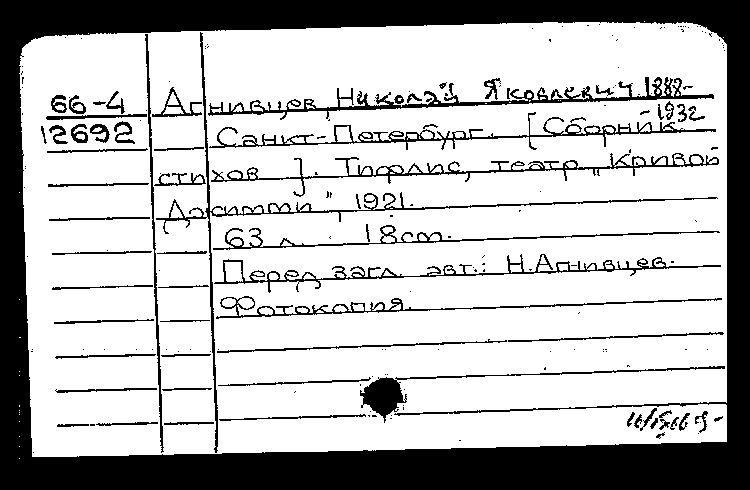 66-4 Агнивцев, Николай Яковлевич 1888-
1932
12692 Санкт-Петербург. [Сборник
стихов]. Тифлис, театр „Кривой
Джимми", 1921.
63 л. 18cm.
Перед загл. авт.: Н.Агнивцев.
Фотокопия.